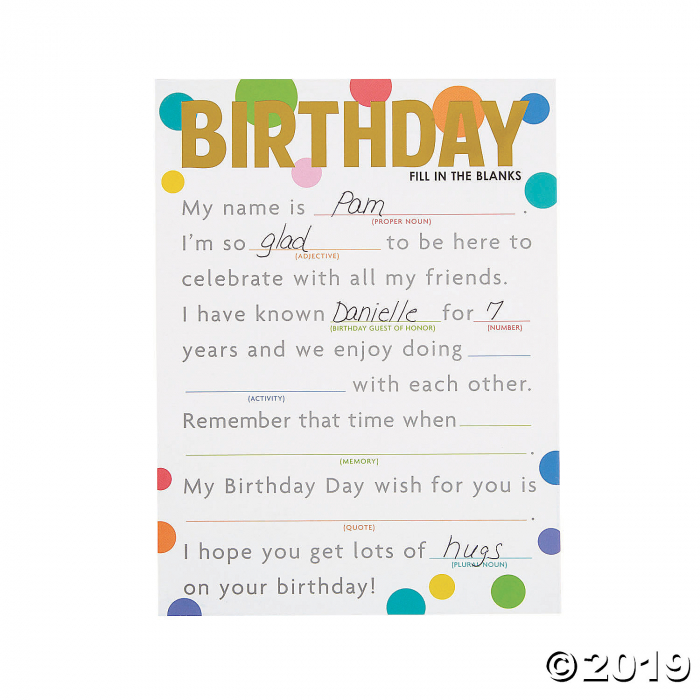 BIRTHDAY
FILL IN THE BLANKS
My name is Pam .
(PROPER NOUN)
I'm so glad to be here to
(ADJECTIVE)
celebrate with all my friends.
I have known Danielle for 7
(BIRTHDAY GUEST OF HONOR) (NUMBER)
years and we enjoy doing
with each other.
(ACTIVITY)
Remember that time when
.
(MEMORY)
My Birthday Day wish for you is
.
(QUOTE)
I hope you get lots of hugs
(PLURAL NOUN)
on your birthday!
©2019